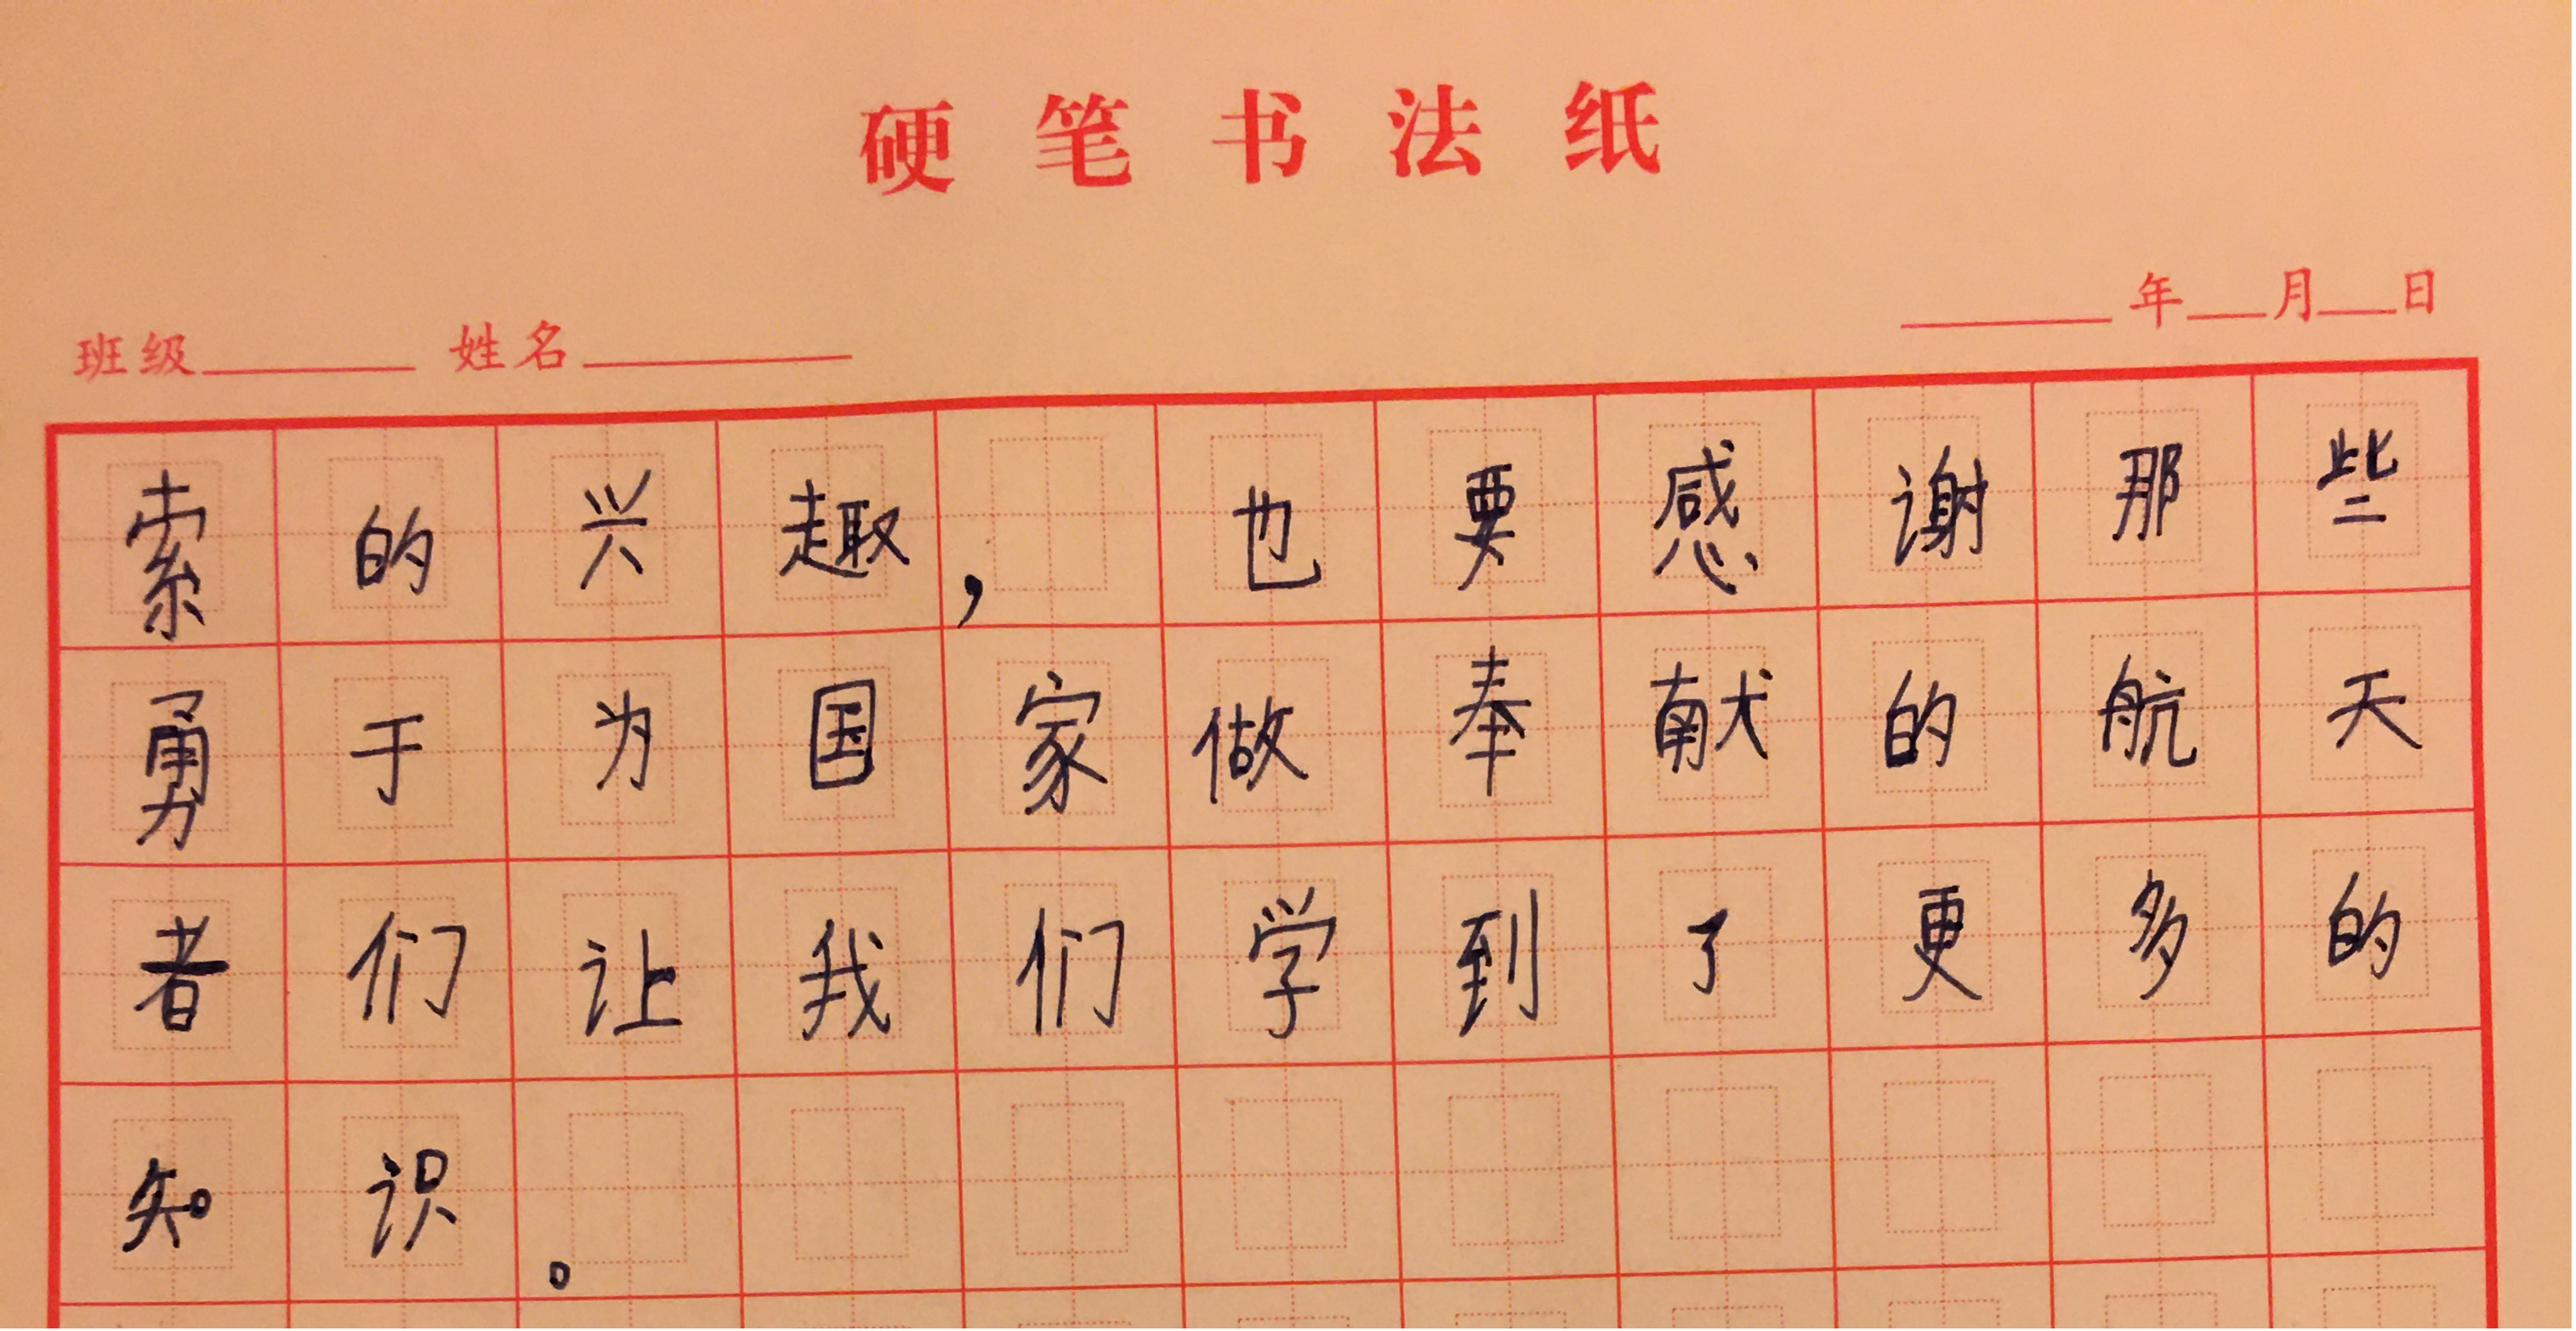 硬笔书法纸
班级 姓名 年 月 日
索的兴趣，也要感谢那些
勇于为国家做奉献的航天
者们让我们学到了更多的
知识。